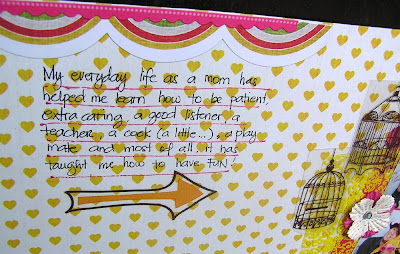 My everyday life as a mom has
helped me learn how to be patient,
extra caring, a good listener, a
teacher, a cook (a little...), a play
mate and most of all, it has
taught me how to have FUN!